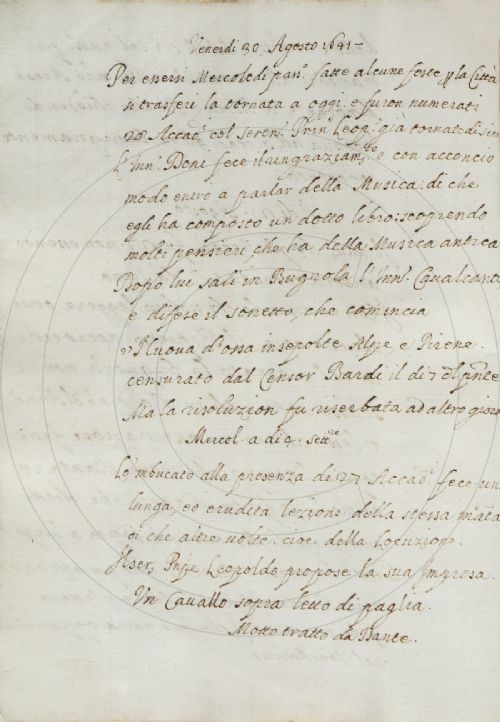 Venerdi 30. Agosto 1641-
Per essersi Mercoledi pass.º fatte alcune feste la Città
si trasferi la tornata a oggi e furon numerati
28 Accad.ⁱ col Seren.º Prin.ᵉ Leop.º già tornato di
L'Inn.º Doni fece il ringraziam.ᵗᵒ e con acconcio
modo entrò a parlar della Musica: di che
egli ha composto un dotto libro: scoprendo
molti pensieri che ha della Musica antica
Dopo lui salì in Bugnola l'Inn.º Cavalcanti
e difese il sonetto, che comincia
Nuova d'ossa insepolte Alpe e Pirene.
censurato dal Censor Bardi il dì 7 del pnte
Ma la risoluzion fu riserbata ad altro giorn
Mercol. a dì 4. Sett.ᵉ
Lo 'mbucato alla presenza di 27 Accad.ⁱ fece un
lunga, ed erudita lezione della stessa mata
di che altre volte. cioè della Locuzione.
Il Ser. Prpe Leopoldo propose la sua Impresa.
Un Cavallo sopra letto di paglia.
Motto tratto da Dante.